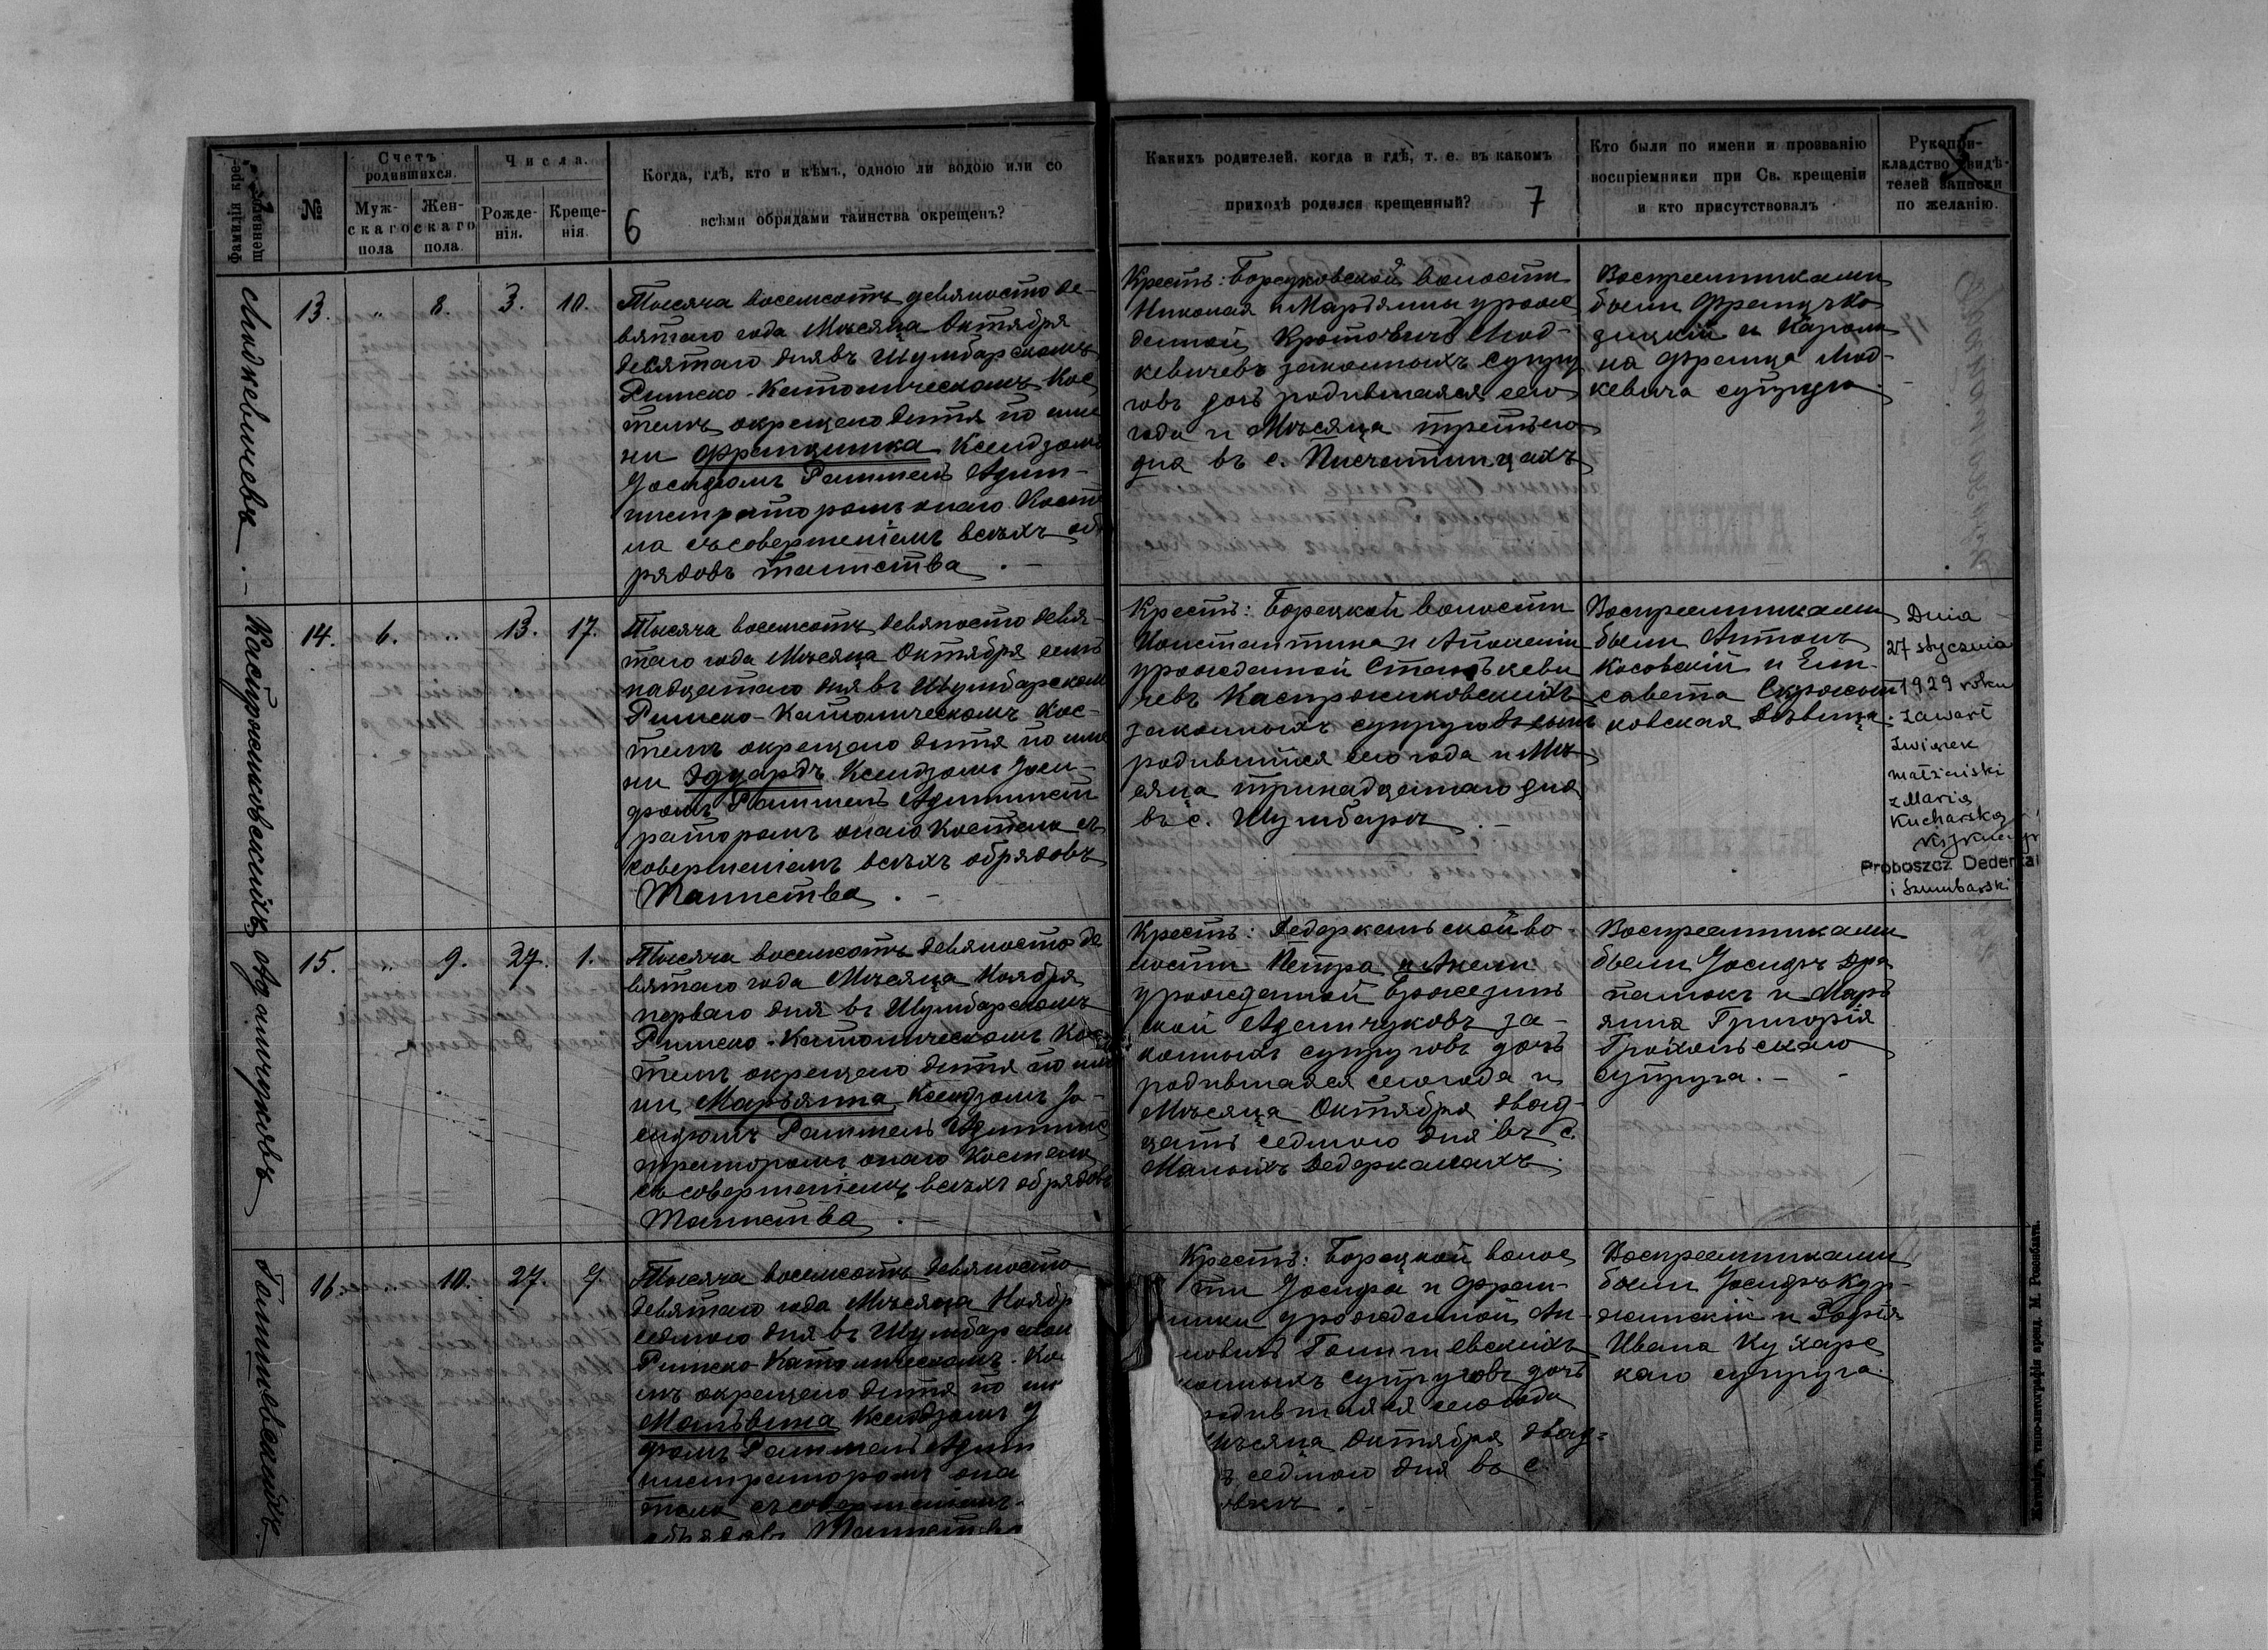 Фамилія кре-
щеннаго
№
Счетъ
родившихся.
Муж-
скаго
пола
Жен-
скаго
пола.
Числа.
Рожде-
нія.
Креще-
нія.
Когда, гдѣ, кто и кѣмъ, одною ли водою или со
всѣми обрядами таинства окрещенъ?
6
Какихъ родителей, когда и гдѣ, т. е. въ какомъ
приходѣ родился крещенный?
7
Кто были по имени и прозванію
воспріемники при Св. крещеніи
и кто присутствовалъ
Рукопри-
кладство свидѣ-
телей записки
по желанію.
Людкевичевъ
13.
"
8.
3.
10.
Тысяча восемсотъ девяносто де-
вятаго года Мѣсяца Октября
девятаго дня въ Шумбарскомъ
Римско-Католическомъ Кос
телѣ окрещено дитя по име
ни Францишка Ксендзомъ
Іосифомъ Раттель Адми-
нистраторомъ онаго Косте
ла съ совершеніемъ всѣхъ об
рядовъ таинства.
Крестъ: Борсуковской волости
Николая и Марьянны урож
денной Кротовичъ Люд-
кевичевъ законныхъ супру
говъ дочь родившаяся сего
года и Мѣсяца третьего
дня въ с.
Воспреемниками
были Францъ Ко
и Кароли
на Франца Люд-
кевича супруга
Кастржиковскихъ
14.
6.
"
13.
17.
Тысяча восемсотъ девяносто девя-
таго года Мѣсяца Октября семь
надцатаго дня въ Шумбарском
Римско-Католическомъ Кос-
телѣ окрещено дитя по име
ни Эдуардъ Ксендзомъ Іоси-
фомъ Раттель Администи
раторомъ онаго Костела съ
совершеніемъ всѣхъ обрядовъ
Таинства.
Крестъ: Борецкой волости
Константина и Аполоніи
урожденной Станькеви
чевъ Кастржиковскихъ
законныхъ супруговъ сынъ
родившійся сего года и Мѣ
сяца тринадцатаго дня
въ с. Шумбарѣ.
Воспреемниками
были Антонъ
Косовскій и Ели-
савета
ковская Дѣвица.
Dnia
27 stycznia
1929 roku
zawarł
związek
małżeński
z Marią
Kucharską
Proboszcz Dederkał
i Szumbarski
Адамчуковъ
15.
"
9.
27.
1.
Тысяча восемсотъ девяносто де
вятаго года Мѣсяца Ноября
перваго дня въ Шумбарскомъ
Римско-Католическомъ Кос
телѣ окрещено дитя по име
ни Марьянна Ксендзомъ Іо-
сифомъ Раттель Админис
траторомъ онаго Костела
съ совершеніемъ всѣхъ обрядовъ
Таинства.
Крестъ: Дедеркальской во-
лости Петра и Анели
урожденной Бржезинь
ской Адамчуковъ за-
конныхъ супруговъ дочь
родившаяся сего года и
Мѣсяца Октября двад-
цать седмого дня въ с.
Малыхъ Дедеркалахъ.
Воспреемниками
были Іосифъ Дра
палюкъ и Марь
янна Григорія
Грохольскаго
супруга.
16.
"
10.
27.
7.
Тысяча восемсотъ девяносто
девятаго года Мѣсяца Ноябр
седмого дня въ Шумбарском
Римско-Католическомъ Ко
лѣ окрещено дитя по им
Мальвина Ксендзомъ І
фомъ Раттель Адми
нистраторомъ она
тела съ совершеніемъ
обрядовъ Таинства
Крестъ: Борецкой волос
ти Іосифа и Фран-
ишки урожденной
конныхъ супруговъ дочь
одившаяся сего года
Мѣсяца Октября двад-
ь седмого дня въ с.
Воспреемниками
были Іосифъ Кур-
жинскій и Зофія
Ивана Кухарс
каго супруга.
Житоміръ, типо-литографія аренд. М. Розенблата.